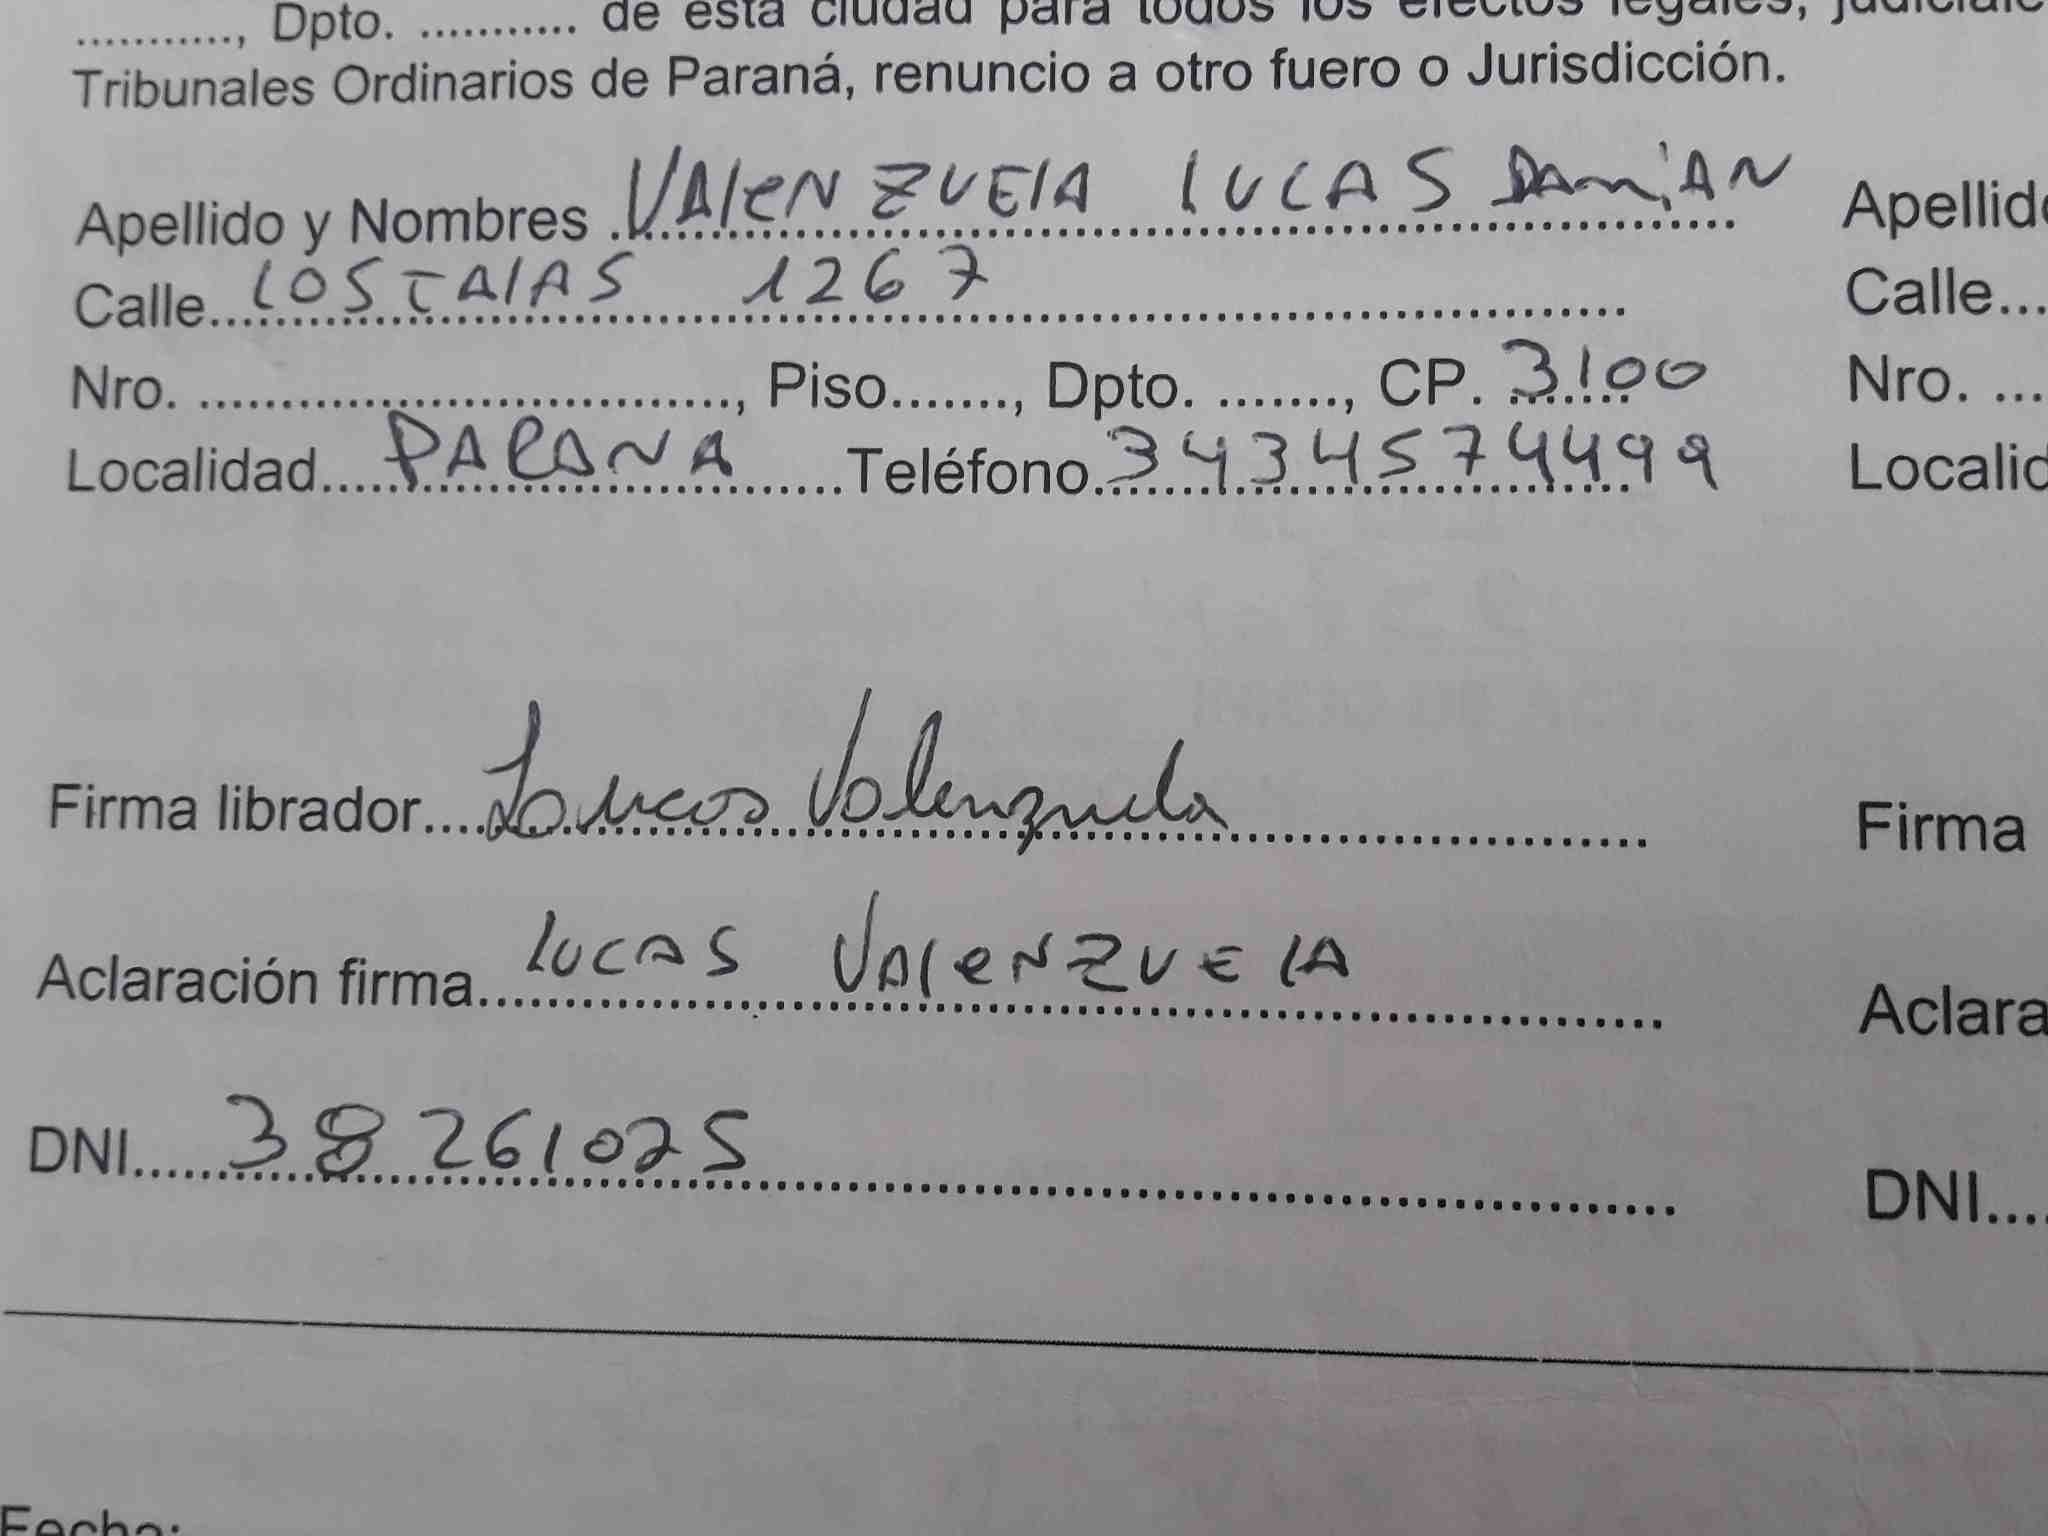 ..........., Dpto. ........... de esta ciudad para todos los efectos legales, judiciale
Tribunales Ordinarios de Paraná, renuncio a otro fuero o Jurisdicción.
Apellido y Nombres VALeNZUElA lUCAS DAMiAN
Calle LOS TAlAS 1267
Nro. ..............................., Piso......., Dpto. ........, CP. 3100
Localidad PARANA Teléfono 3434574499
Firma librador Lucas Valenzuela
Aclaración firma lUCAS VAleNZUElA
DNI 38261025
Apellido
Calle...
Nro. ...
Localid
Firma
Aclara
DNI....
Fecha: